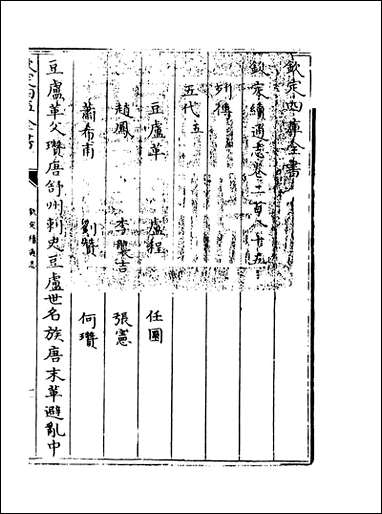 欽定四庫全書
欽定續通志卷二百八十五
列傳
五代五
豆盧革 盧程 任圜
趙鳳 李襲吉 張憲
蕭希甫 劉贊 何瓚
豆盧革父瓚唐舒州刺史豆盧世名族唐末革避亂中
欽定續通志